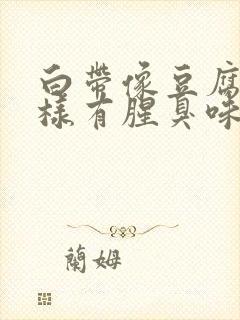 白帶像豆腐
樣有腥臭味
蘭姆